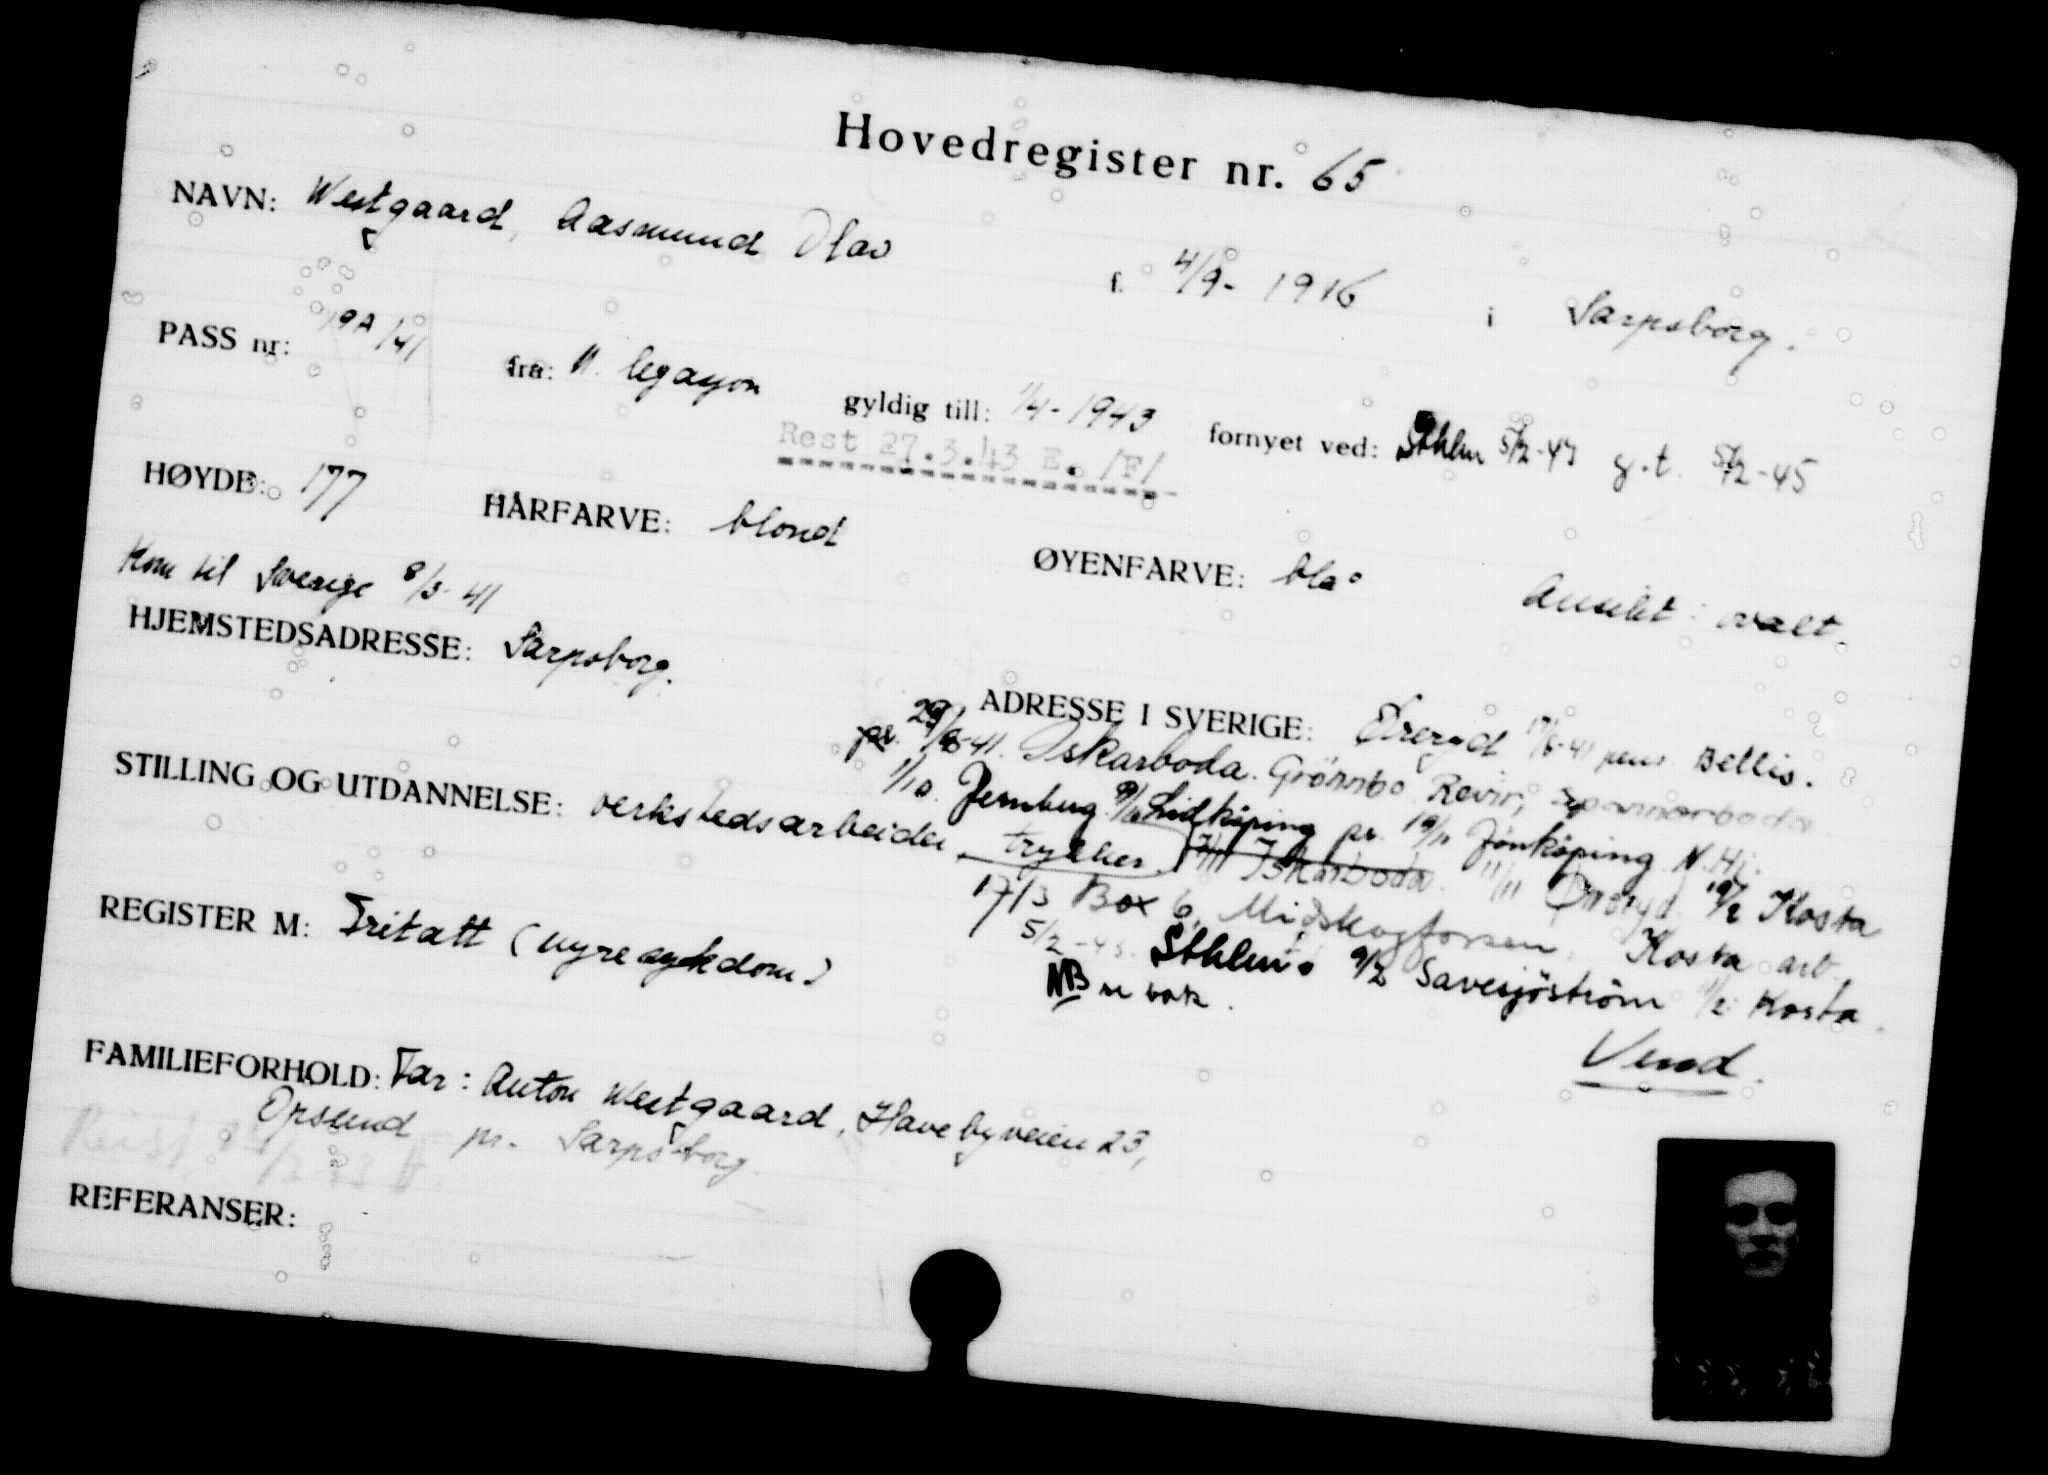 Hovedregister nr. 65
NAVN: Westgaard, Aasmund Olav f. 4/9- 1916 i Sarpsborg.
PASS nr: 19A/41 fra: N. legasjon gyldig till: 1/4-1943 fornyet ved: Sthlm 5/2-43 g.t. 5/2-45
Rest 27.3.43 E. /F/
HØYDE: 177 HÅRFARVE: blond ØYENFARVE: blå Ansikt: ovalt.
Kom til Sverige 8/3-41
HJEMSTEDSADRESSE: Sarpsborg.
ADRESSE I SVERIGE: Øreryd 17/6-41 pens. Bellis.
pr. 29/8-41. Iskarboda. Grönnbo Revir,
1/10. Jernberg Lidköping pr. 19/11 Jönköping N.Hj.
STILLING OG UTDANNELSE: verkstedsarbeider, trykker. 7/11 Iskarboda. 11/11 Öreryd. 19/2 Kosta
17/3 Box 6, Midskogforsen, Kosta arb.
REGISTER M: Fritatt (nyresykdom)
5/2-43. Sthlm. 9/2 Savesjöström 11/2 Kosta.
NB
Vend.
FAMILIEFORHOLD: Far: Anton Westgaard, Havebyveien 23,
Opsund pr. Sarpsborg.
REFERANSER: